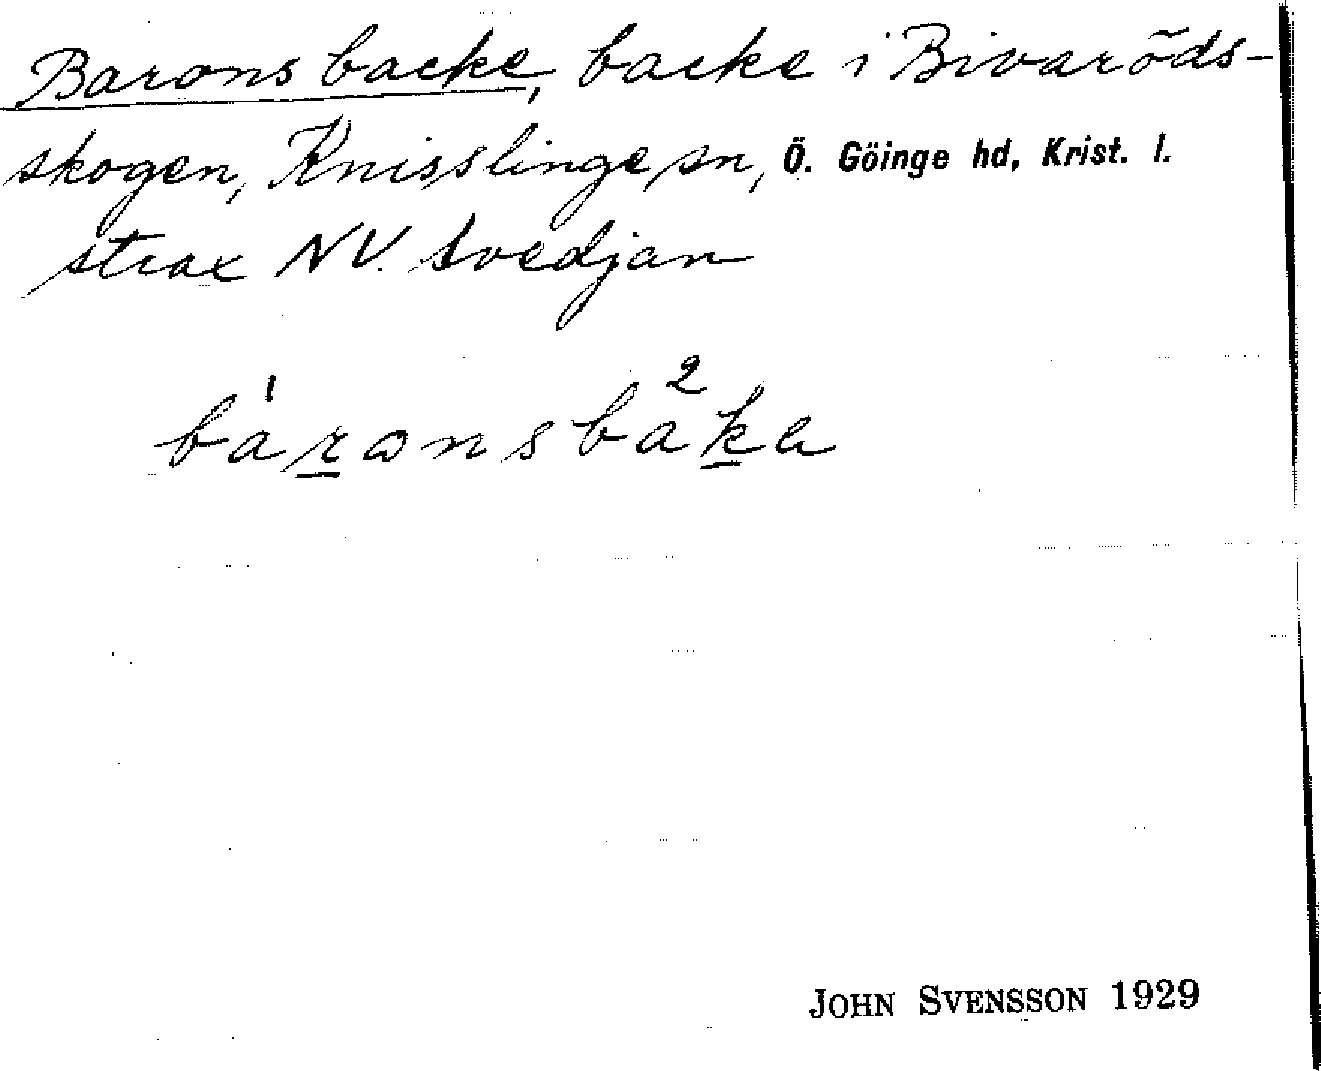 Baronsbacke, backe i Bivaröds-
skogen, Knisslinge sn, Ö. Göinge hd, Krist. l.
strax NV. Svedjan
1 2
baronsbaka
JOHN SVENSSON 1929